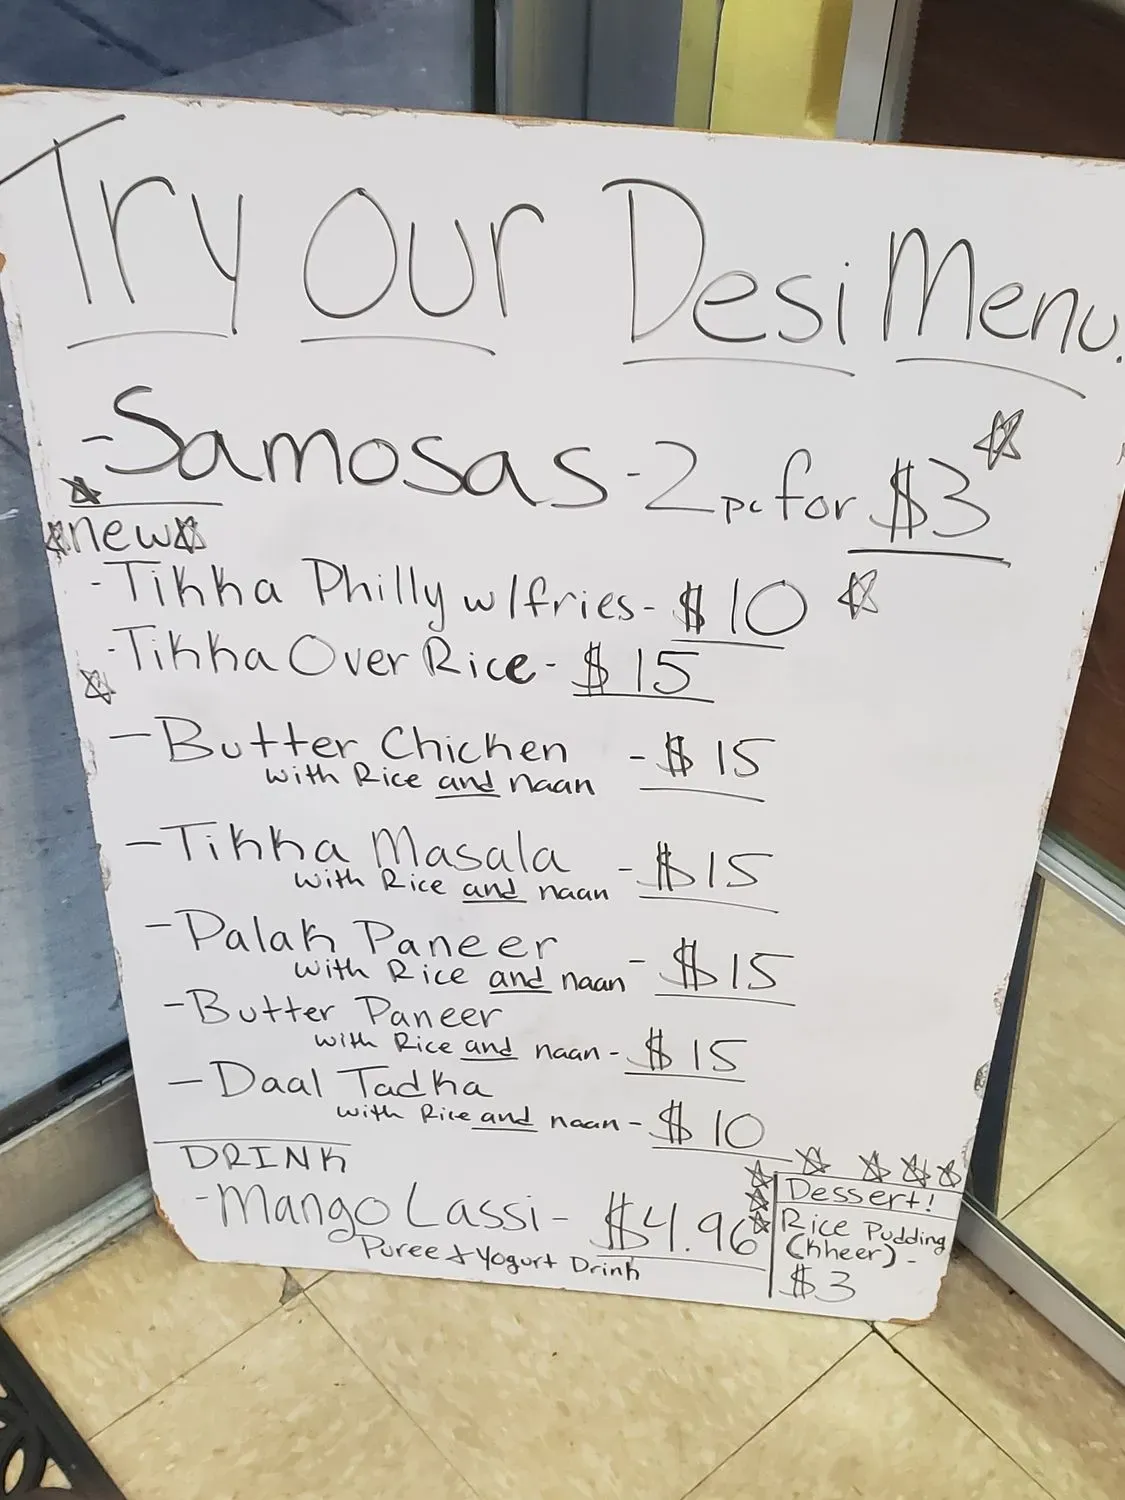 Try Our Desi Menu.
-Samosas-2pc for $3
new
-Tikka Philly w/fries-$10
-Tikka Over Rice-$15
-Butter Chicken -$15
with Rice and naan
-Tikka Masala -$15
with Rice and naan
-Palak Paneer -$15
with Rice and naan
-Butter Paneer
with Rice and naan-$15
-Daal Tadka
with Rice and naan-$10
DRINK
-Mango Lassi-$4.96
Puree & Yogurt Drink
Dessert!
Rice Pudding
(Kheer)-
$3